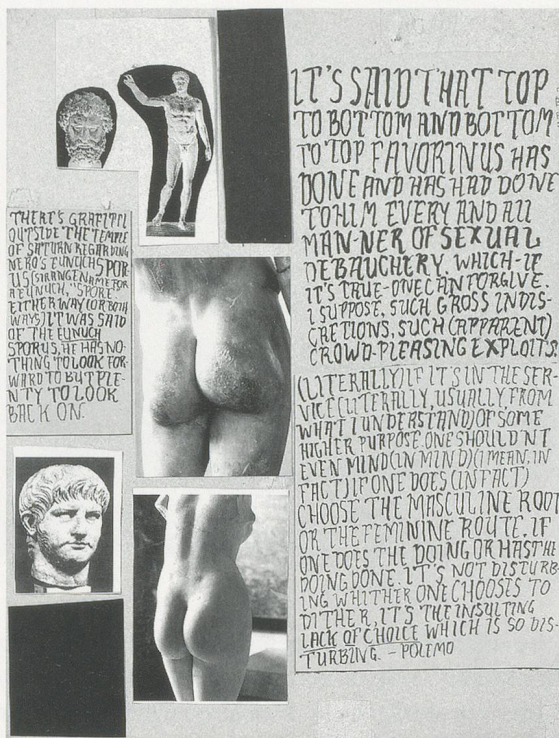 THERE'S GRAFITTI
OUTSIDE THE TEMPLE
OF SATURN REGARDING
NERO'S EUNUCH SPOR-
US (STRANGE NAME FOR
A EUNUCH, "SPORE."
EITHER WAY (OR BOTH
WAYS) IT WAS SAID
OF THE EUNUCH
SPORUS, HE HAS NO-
THING TO LOOK FOR-
WARD TO BUT PLE-
NTY TO LOOK
BACK ON.
IT'S SAID THAT TOP
TO BOTTOM AND BOTTOM
TO TOP FAVORINUS HAS
DONE AND HAS HAD DONE
TO HIM EVERY AND ALL
MAN-NER OF SEXUAL
DEBAUCHERY. WHICH-IF
IT'S TRUE-ONE CAN FORGIVE.
I SUPPOSE, SUCH GROSS INDIS-
CRETIONS, SUCH (APPARENT)
CROWD-PLEASING EXPLOITS.
(LITERALLY) IF IT'S IN THE SER-
VICE (LITERALLY, USUALLY, FROM
WHAT I UNDERSTAND) OF SOME
HIGHER PURPOSE. ONE SHOULDN'T
EVEN MIND (IN MIND) (I MEAN, IN
FACT) IF ONE DOES (IN FACT)
CHOOSE THE MASCULINE ROUTE
OR THE FEMININE ROUTE. IF
ONE DOES THE DOING OR HAS THE
DOING DONE. IT'S NOT DISTURB-
ING WHITHER ONE CHOOSES TO
DITHER, IT'S THE INSULTING
LACK OF CHOICE WHICH IS SO DIS-
TURBING. - POLEMO